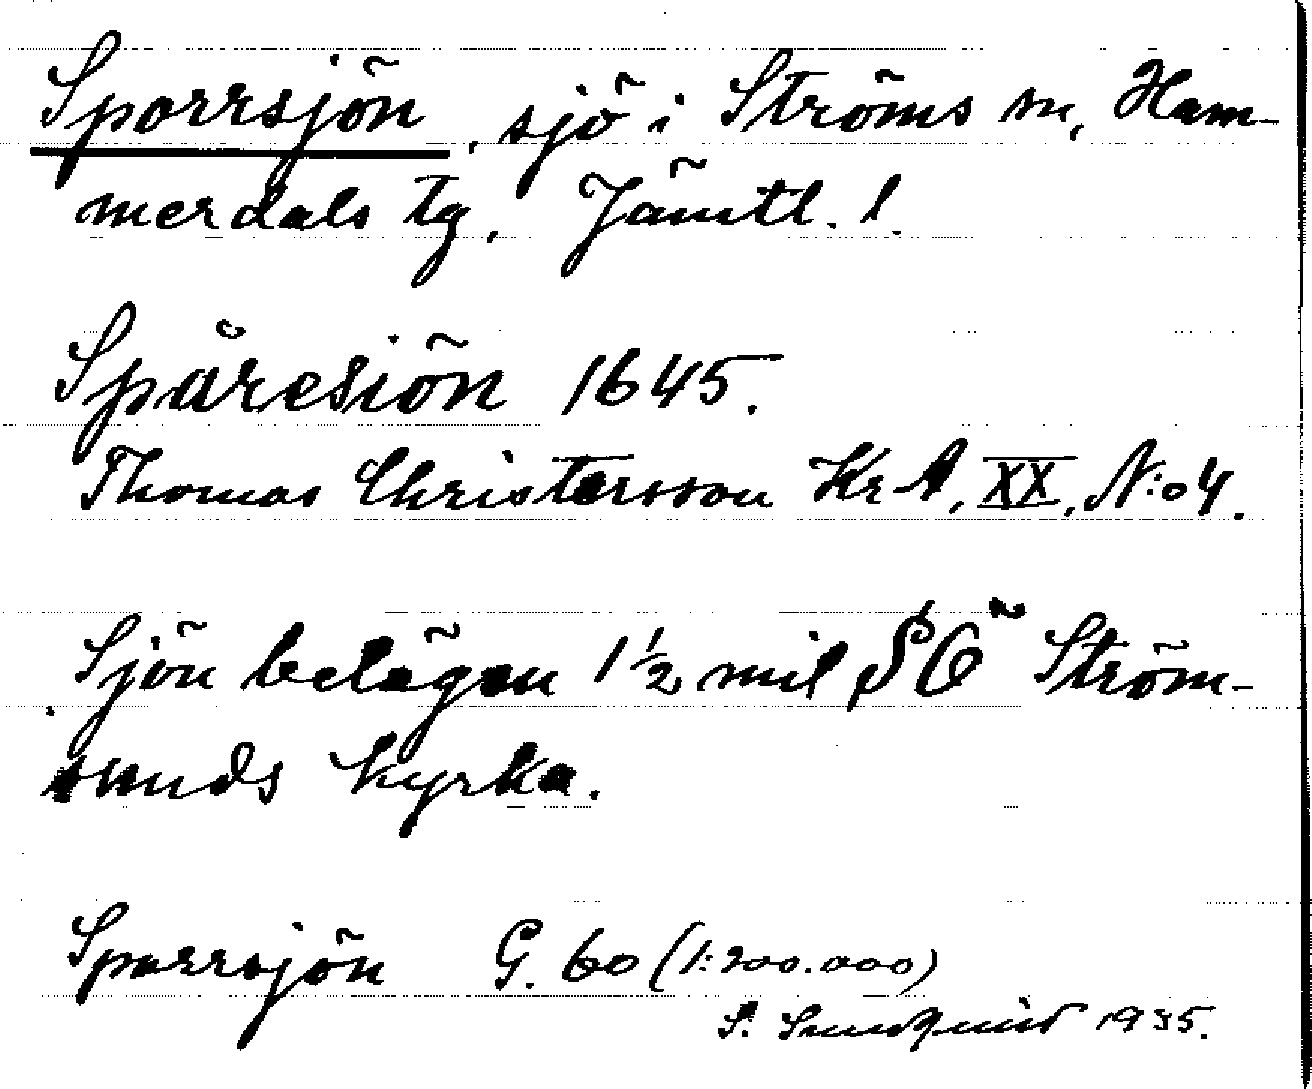 Sporrsjön, sjö i Ströms sn, Ham-
merdals tg, Jämtl. l.
Spåresiön 1645.
Thomas Christersson Kr A, XX, N:o 4.
Sjön belägen 1 1/2 mil SÖ Ström-
sunds kyrka.
Sporrsjön G. 60 (1:200.000)
S. 1935.